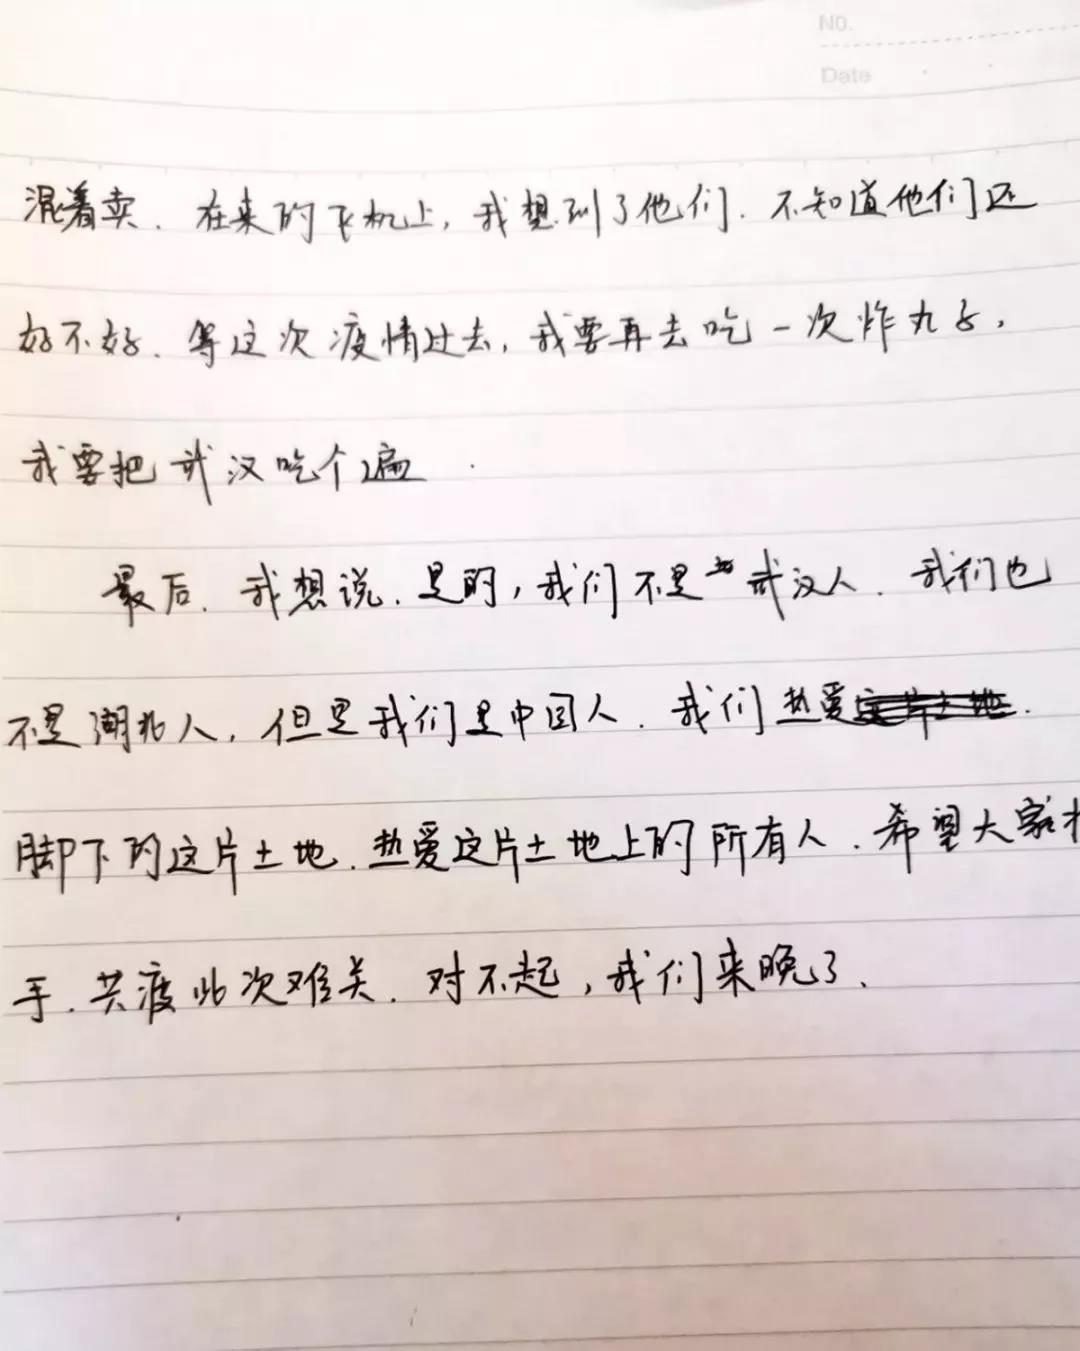 NO.
Date
混着卖. 在来的飞机上, 我想到了他们. 不知道他们还
好不好. 等这次疫情过去, 我要再去吃一次炸丸子,
我要把武汉吃个遍.
最后. 我想说. 是的, 我们不是武汉人. 我们也
不是湖北人, 但是我们是中国人. 我们热爱
脚下的这片土地. 热爱这片土地上的所有人. 希望大家
手. 共渡此次难关. 对不起, 我们来晚了.